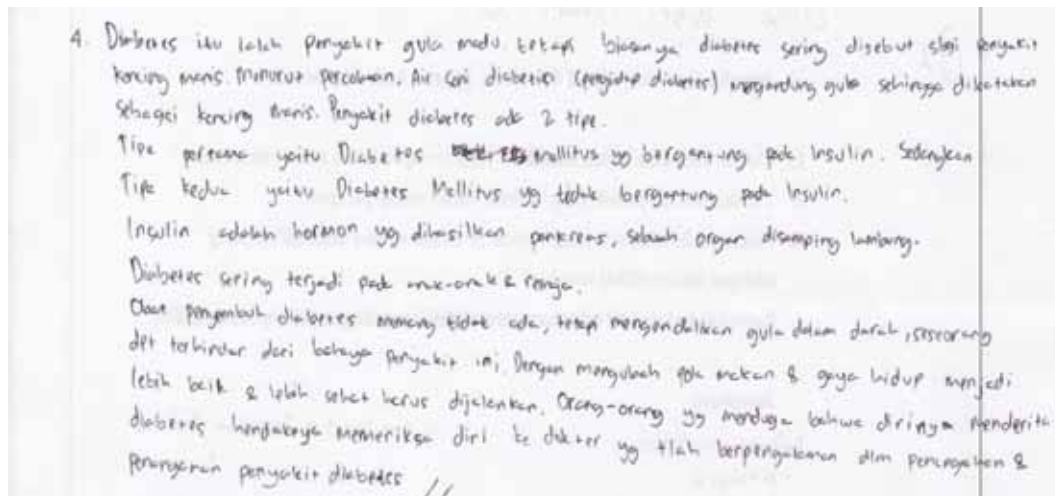 4. Diabetes itu ialah penyakit gula madu tetapi biasanya diabetes sering disebut sbgi penyakit
kencing manis. Menurut percobaan, Air seni diabetisi (pengidap diabetes) mengandung gula sehingga dikatakan
sebagai kencing manis. Penyakit diabetes ada 2 tipe.
Tipe pertama yaitu Diabetes mellitus yg bergantung pada Insulin. Sedangkan
Tipe kedua yaitu Diabetes Mellitus yg tidak bergantung pada Insulin.
Insulin adalah hormon yg dihasilkan pankreas, sebuah organ disamping lambung.
Diabetes sering terjadi pada anak-anak & remaja.
Obat penyembuh diabetes memang tidak ada, tetapi mengendalikan gula dalam darah, seseorang
dpt terhindar dari bahaya penyakit ini, Dengan mengubah pola makan & gaya hidup menjadi
lebih baik & lebih sehat harus dijalankan. Orang-orang yg menduga bahwa dirinya menderita
diabetes hendaknya memeriksa diri ke dokter yg tlah berpengalaman dlm pencegahan &
penanganan penyakit diabetes //